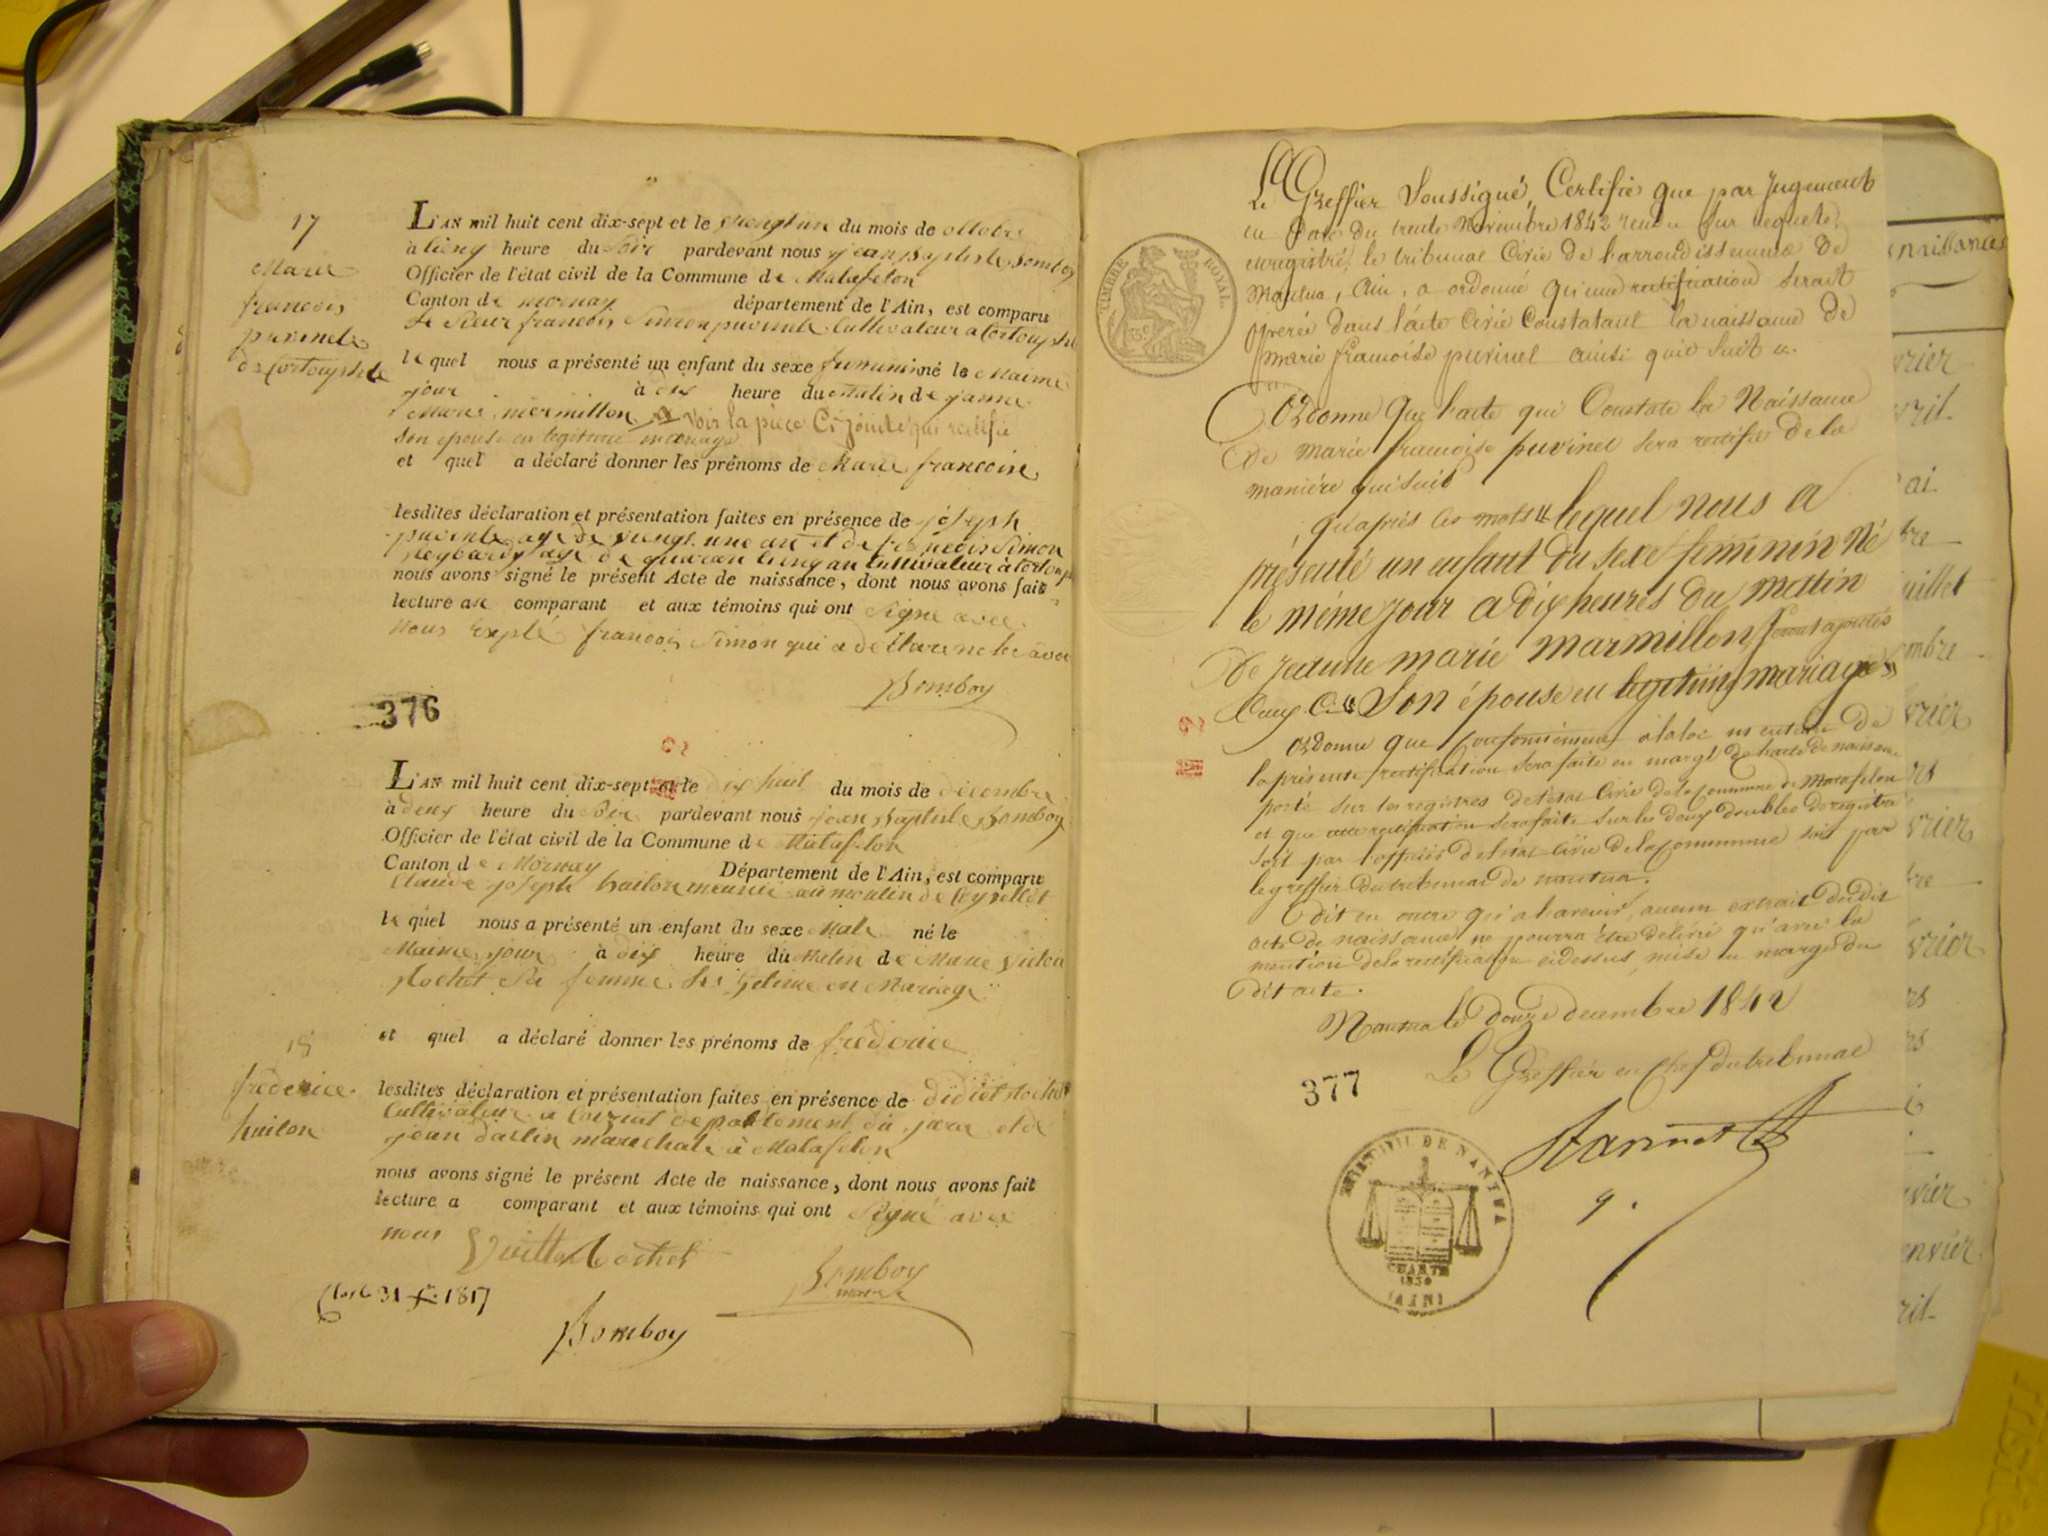 17
Marie
francois
puvinel
de Cortouphle
L'AN mil huit cent dix-sept et le vengt un du mois de ottobre
à cinq heure du soir pardevant nous jean Baptiste Bomboy
Officier de l'état civil de la Commune de Matafelon
Canton de mornay département de l'Ain, est comparu
le sieur francois Simon puvinel Cultivateur a Cortouphle
le quel nous a présenté un enfant du sexe feminin né le Maime
jour à dix heure du matin de janne
Marie mermillon voir la pièce Ci-jointe qui rectifie
son epouse en legitime mariage
et quel a déclaré donner les prénoms de Marie francoise
lesdites déclaration et présentation faites en présence de joseph
puvinel age de vengt une an et de francois Simon
age de quaran cinq an Cultivateur à Cortouphle
nous avons signé le présent Acte de naissance, dont nous avons fait
lecture au comparant et aux témoins qui ont signé avec
nous exepté francois Simon qui a déclaré ne le savoir
Bomboy
376
L'AN mil huit cent dix-sept et le dix huit du mois de decembre
à deux heure du soir pardevant nous jean Baptiste Bomboy
Officier de l'état civil de la Commune de Matafelon
Canton de Mornay Département de l'Ain, est comparu
Claude joseph huilon meunié au moulin de
le quel nous a présenté un enfant du sexe Male né le
Maime jour à dix heure du Matin de Marie
Rochet Sa femme legitime en Mariage
et quel a déclaré donner les prénoms de frederice
15
frederice
huilon
lesdites déclaration et présentation faites en présence de Rochet
Cultivateur a departement du jura et de
jean darlin marechale à Matafelon
nous avons signé le présent Acte de naissance, dont nous avons fait
lecture a comparant et aux témoins qui ont signé avec
nous
Bomboy
maire
Clos le 31 Xbre 1817
Bomboy
TIMBRE ROYAL
Le Greffier Soussigné, Certifie que par Jugement
en date du trente Novembre 1842 rendu sur requete,
enregistré, le tribunal Civil de l'arrondissement de
Nantua, Ain, a ordonné qu'une rectification serait
opérée dans l'acte Civil Constatant la naissance de
marie françoise puvinel ainsi qu'il suit
Ordonne Que l'acte qui Constate la Naissance
de marie françoise puvinel sera rectifié de la
manière qui suit
, qu'après les mots "lequel nous a
présenté un enfant du sexe féminin Né
le même jour a dix heures du matin
De Jeanne marie marmillon, seront ajoutés
Ceux Ci "Son épouse en légitime mariage"
Ordonne que Conformément à la loi mention de
la présente rectification sera faite en marge de l'acte de naissance
porté sur les registres de l'état Civil de la Commune de Matafelon
et que cette rectification sera faite sur les deux doubles du registre
soit par l'officier de l'état Civil de la Commune soit par
le greffier du tribunal de nantua.
Dit en outre qu'à l'avenir, aucun extrait du dit
acte de naissance ne pourra être delivré qu'avec la
mention de la rectification ci dessus, mise en marge du
dit acte.
Nantua le douze decembre 1842
Le Greffier en Chef du tribunal
377
TRIBUNAL DE NANTUA
CHARTE
1830
(AIN)
naissances